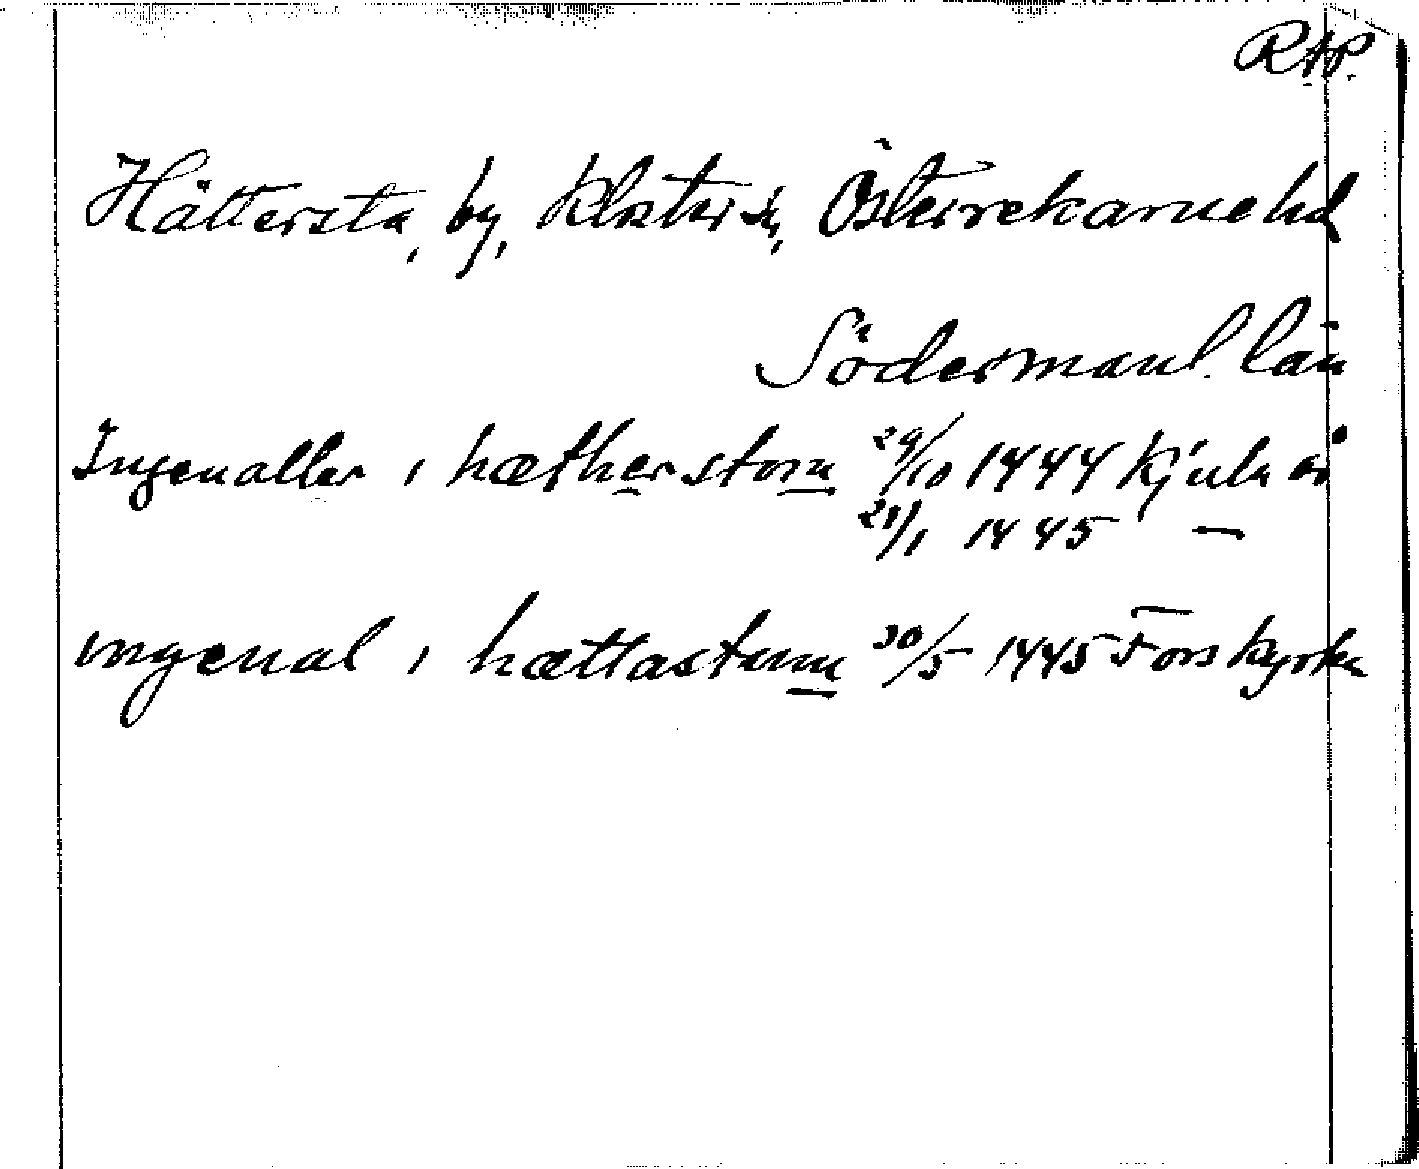 RAP.
Hättersta, by, Kloster sn, Österrekarne hd
Södermanl. län
Ingeualler i hætherstom 29/10 1444 Kjula ås
21/1 1445 —
ingeual i hættastum 30/5 1445 Fors kyrka